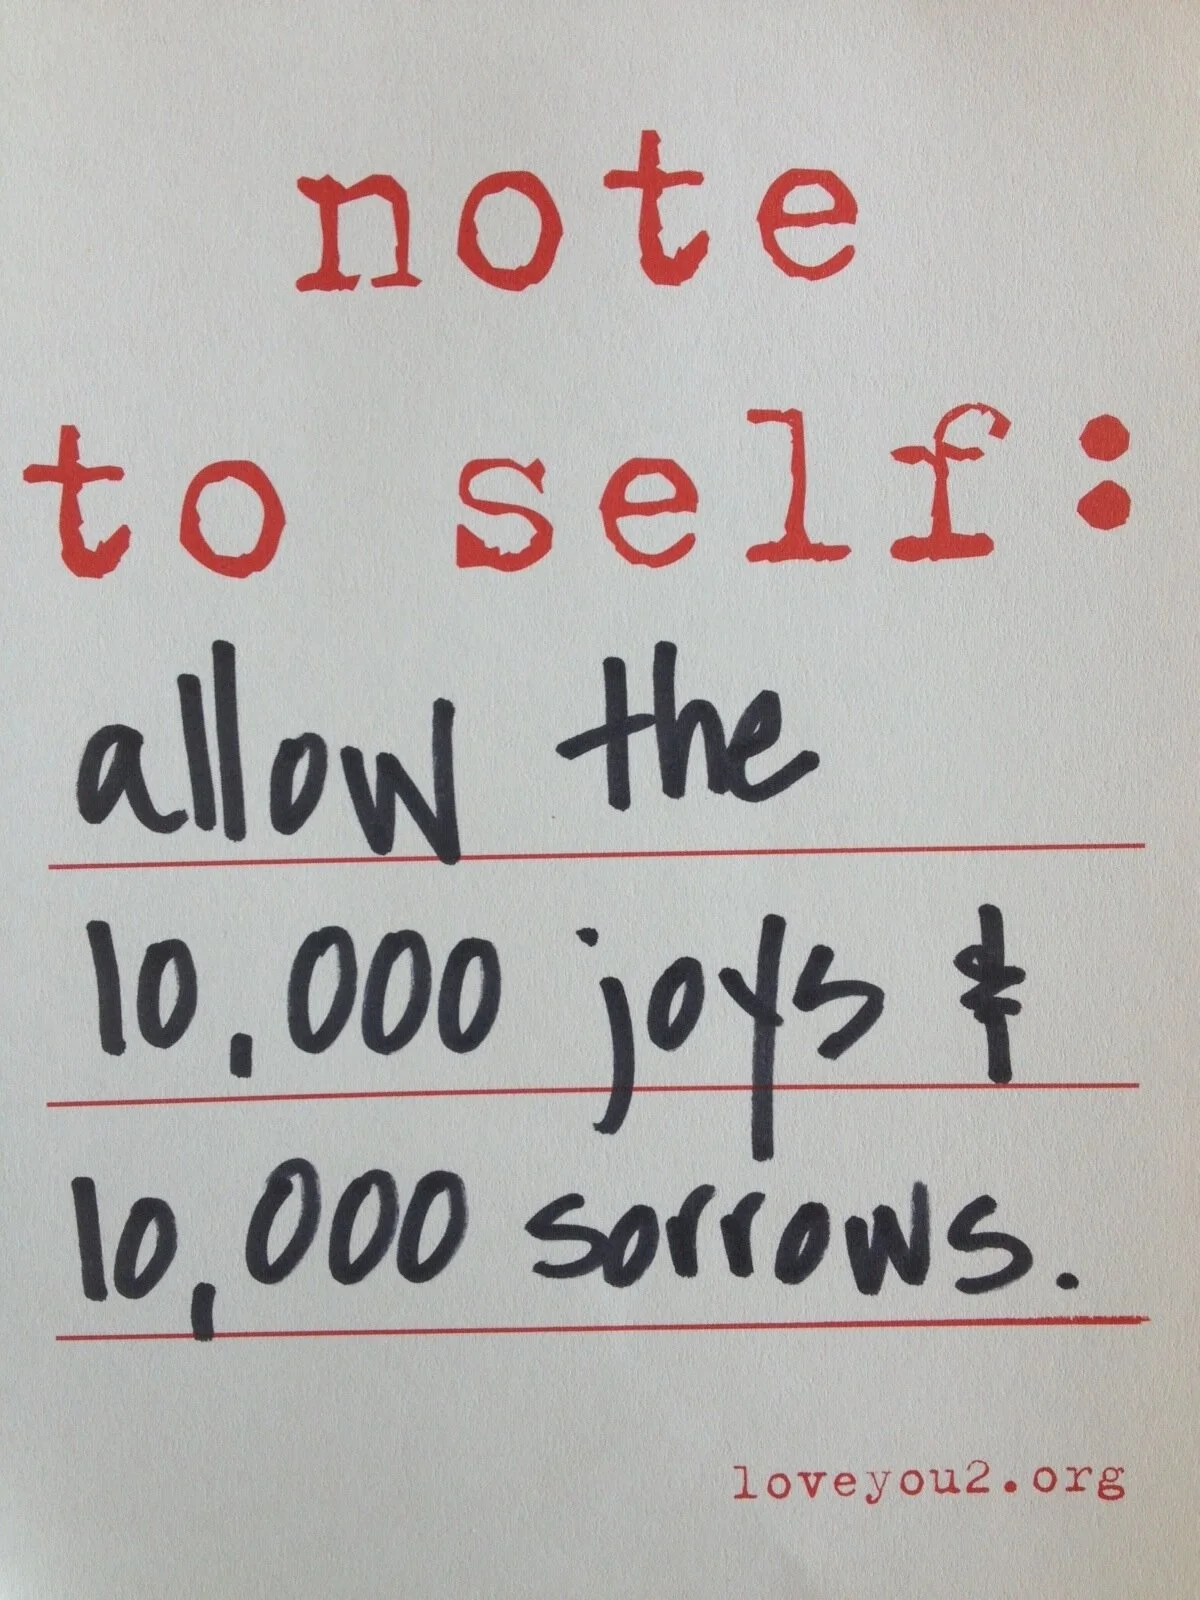 note
to self:
allow the
10,000 joys &
10,000 sorrows.
loveyou2.org